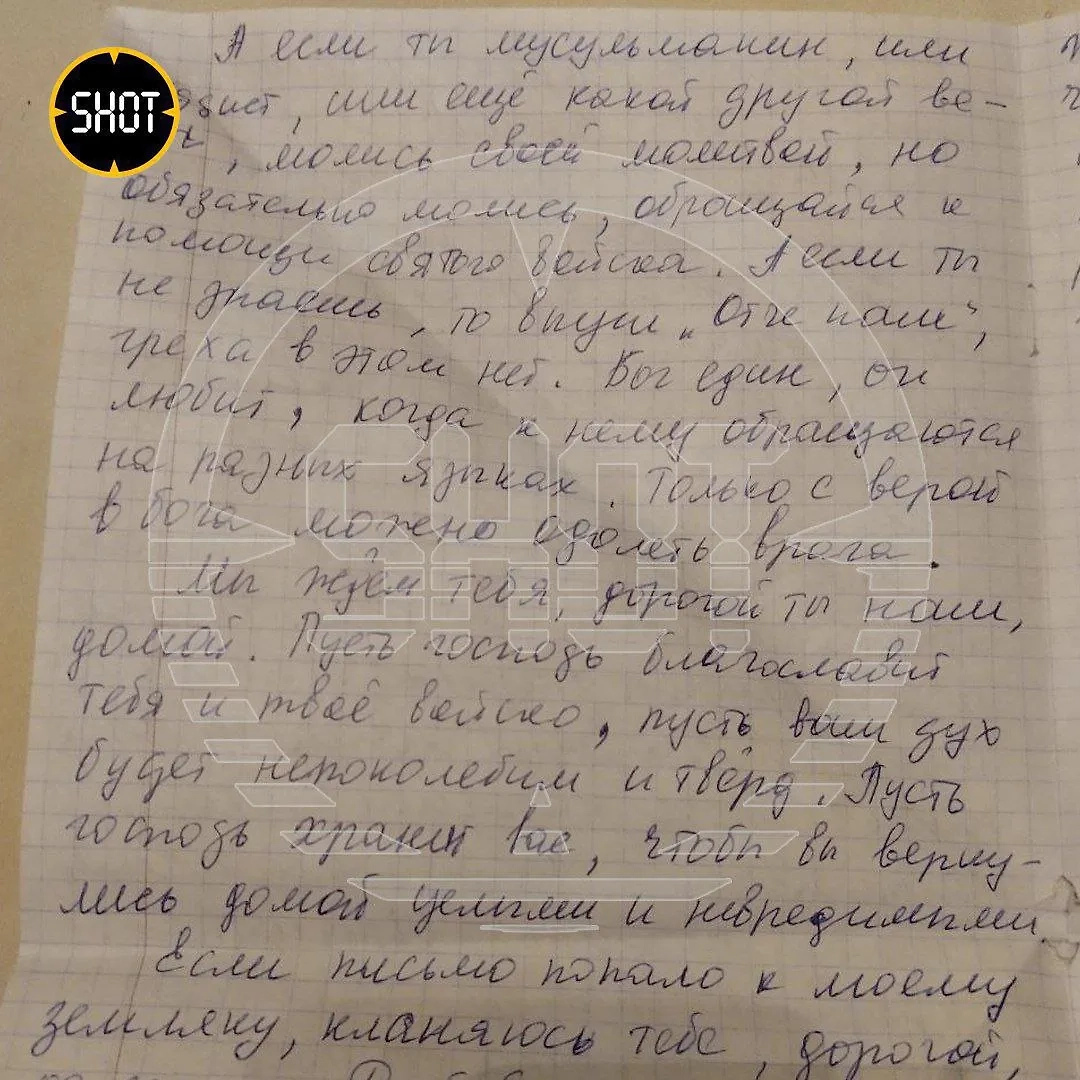 SHOT
А если ты мусульманин, или
или ещё какой другой ве-
, молись своей молитвой, но
обязательно молись, обращайся к
помощи святого войска. А если ты
не знаешь, то внуши „Отче наш",
греха в этом нет. Бог един, он
любит, когда к нему обращаются
на разных языках. Только с верой
в бога можно одолеть врага.
Мы ждём тебя, дорогой ты наш,
домой. Пусть господь благословит
тебя и твоё войско, пусть ваш дух
будет непоколебим и твёрд. Пусть
господь хранит вас, чтобы вы верну-
лись домой целыми и невредимыми
Если письмо попало к моему
земляку, кланяюсь тебе, дорогой,